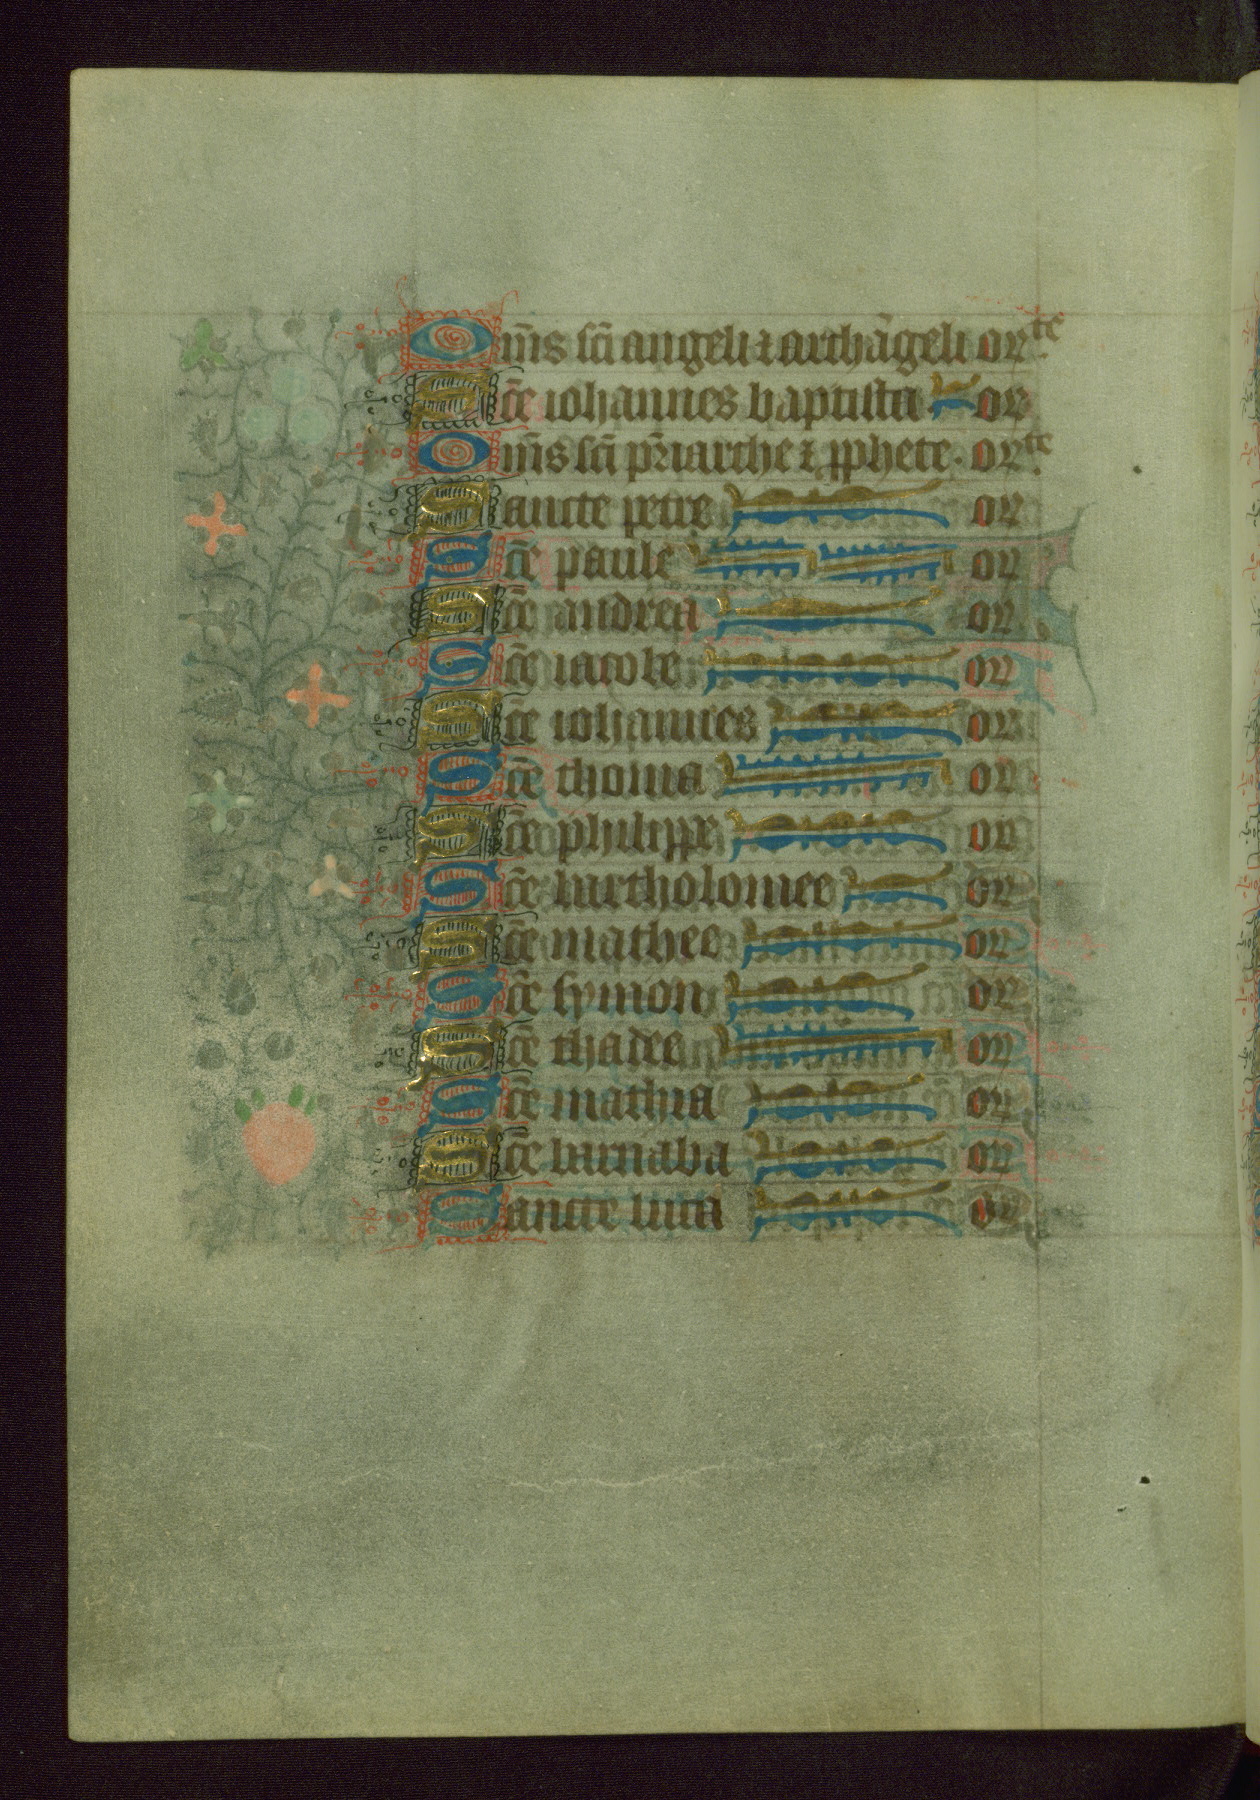 Om̄s sc̄i angeli ⁊ archāgeli orᵗᵉ.
Sc̄e iohannes baptista or
Om̄s sc̄i pr̄iarche ⁊ ꝓphete. orᵗᵉ.
Sancte petre or
Sc̄e paule or
Sc̄e andrea or
Sc̄e iacobe or
Sc̄e iohannes or
Sc̄e thoma or
Sc̄e philippe or
Sc̄e bartholomee or
Sc̄e mathee or
Sc̄e symon or
Sc̄e thadee or
Sc̄e mathia or
Sc̄e barnaba or
Sancte luca or